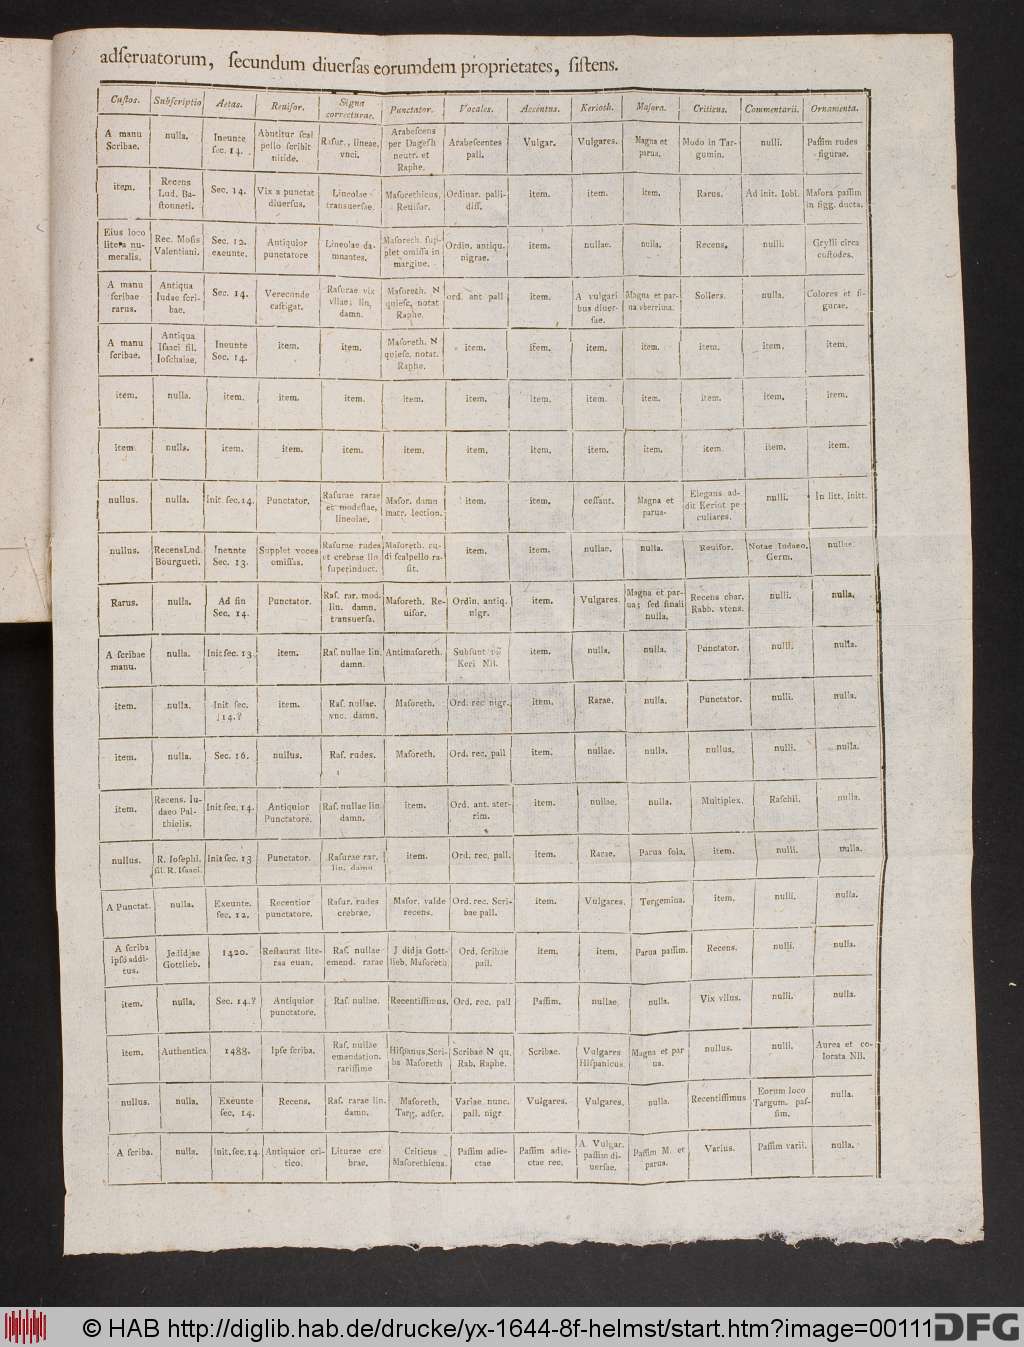 adſeruatorum, ſecundum diuerſas eorumdem proprietates, ſiſtens.
Cuſtos. Subſcriptio Aetas. Reuiſor. Signa correcturae. Punctator. Vocales. Accentus. Keriosh. Maſora. Criticus. Commentarii. Ornamenta.
A manu Scribae. nulla. Ineunte ſec. 14. Abutitur ſcalpello ſcribit nitide. Raſur., lineae, vnci. Arabeſcens per Dageſh neutr. et Raphe. Arabeſcentes pall. Vulgar. Vulgares. Magna et parua. Modo in Targumin. nulli. Paſſim rudes figurae.
item. Recens Lud. Baſtonneti. Sec. 14. Vix a punctat diuerſus. Lineolae transuerſae. Maſorethicus, Reuiſor. Ordinar. pallidiſſ. item. item. item. Rarus. Ad init. Iobi. Maſora paſſim in figg. ducta.
Eius loco litera numeralis. Rec. Moſis Valentiani. Sec. 12. exeunte. Antiquior punctatore Lineolae damnantes. Maſoreth. ſupplet omiſſa in margine. Ordin. antiqu. nigrae. item. nullae. nulla. Recens. nulli. Grylli circa cuſtodes.
A manu ſcribae rarus. Antiqua Iudae ſcribae. Sec. 14. Verecunde caſtigat. Raſurae vix vllae; lin. damn. Maſoreth. א quieſc. notat Raphe. ord. ant pall item. A vulgaribus diuerſae. Magna et parua vberrima. Sollers. nulla. Colores et figurae.
A manu ſcribae. Antiqua Iſaaci fil. Ioſchaiae. Ineunte Sec. 14. item. item. Maſoreth. א quieſc. notat. Raphe. item. item. item. item. item. item. item.
item. nulla. item. item. item. item. item. item. item. item. item. item. item.
item nulla. item. item. item. item. item. item. item. item. item. item. item.
nullus. nulla. Init ſec. 14. Punctator. Raſurae rarae et modeſtae, lineolae. Maſor. damn matr. lection. item. item. ceſſant. Magna et parua. Elegans addit Keriot peculiares. nulli. In litt. initt.
nullus. Recens Lud. Bourgueti. Inennte Sec. 13. Supplet voces omiſſas. Raſurae rudes et crebrae lin ſuperinduct. Maſoreth. rudi ſcalpello raſit. item. item. nullae. nulla. Reuiſor. Notae Iudaeo. Germ. nullae.
Rarus. nulla. Ad fin Sec. 14. Punctator. Raſ. rar. mod. lin. damn. transuerſa. Maſoreth. Reuiſor. Ordin. antiq. nigr. item. Vulgares. Magna et parua; ſed finali nulla. Recens char. Rabb. vtens. nulli. nulla.
A ſcribae manu. nulla. Init ſec. 13. item. Raſ. nullae lin. damn. Antimaſoreth. Subſunt Keri Nil. item. nulla. nulla. Punctator. nulli. nulla.
item. nulla. Init ſec. 14.? item. Raſ. nullae. vnc. damn. Maſoreth. Ord. rec nigr. item. Rarae. nulla. Punctator. nulli. nulla.
item. nulla. Sec. 16. nullus. Raſ. rudes. Maſoreth. Ord. rec. pall item. nullae. nulla. nullus. nulli. nulla.
item. Recens. Iudaeo Palthielis. Init ſec. 14. Antiquior Punctatore. Raſ. nullae lin damn. item. Ord. ant. aterrim. item. nullae. nulla. Multiplex. Raſchii. nulla.
nullus. R. Ioſephi. fil. R. Iſaaci. Init ſec. 13 Punctator. Raſurae rar. lin. damn item. Ord. rec. pall. item. Rarae. Parua ſola. item. nulli. nulla.
A Punctat. nulla. Exeunte. ſec. 12. Recentior punctatore. Raſur. rudes crebrae. Maſor. valde recens. Ord. rec. Scribae pall. item. Vulgares. Tergemina. item. nulli. nulla.
A ſcriba ipſo additus. Jedidjae Gottlieb. 1420. Reſtaurat literas euan. Raſ. nullae emend. rarae J didja Gottlieb. Maſoreth Ord. ſcribae pall. item. item. Parua paſſim. Recens. nulli. nulla.
item. nulla. Sec. 14.? Antiquior punctatore. Raſ. nullae. Recentiſſimus. Ord. rec. pall Paſſim. nullae. nulla. Vix vllus. nulli. nulla.
item. Authentica 1488. Ipſe ſcriba. Raſ. nullae emendation. rariſſime Hiſpanus. Scriba Maſoreth Scribae א qu. Rab. Raphe. Scribae. Vulgares Hiſpanicus Magna et parua. nullus. nulli. Aurea et colorata NB.
nullus. nulla. Exeunte ſec. 14. Recens. Raſ. rarae lin. damn. Maſoreth. Targ. adſcr. Variae nunc. pall. nigr Vulgares. Vulgares. nulla. Recentiſſimus Eorum loco Targum. paſſim. nulla.
A ſcriba. nulla. Init. ſec. 14. Antiquior critico. Liturae crebrae. Criticus Maſorethicus. Paſſim adiectae Paſſim adiectae rec. A. Vulgar. paſſim diuerſae. Paſſim M. et parua. Varius. Paſſim varii. nulla.
© HAB http://diglib.hab.de/drucke/yx-1644-8f-helmst/start.htm?image=00111
DFG